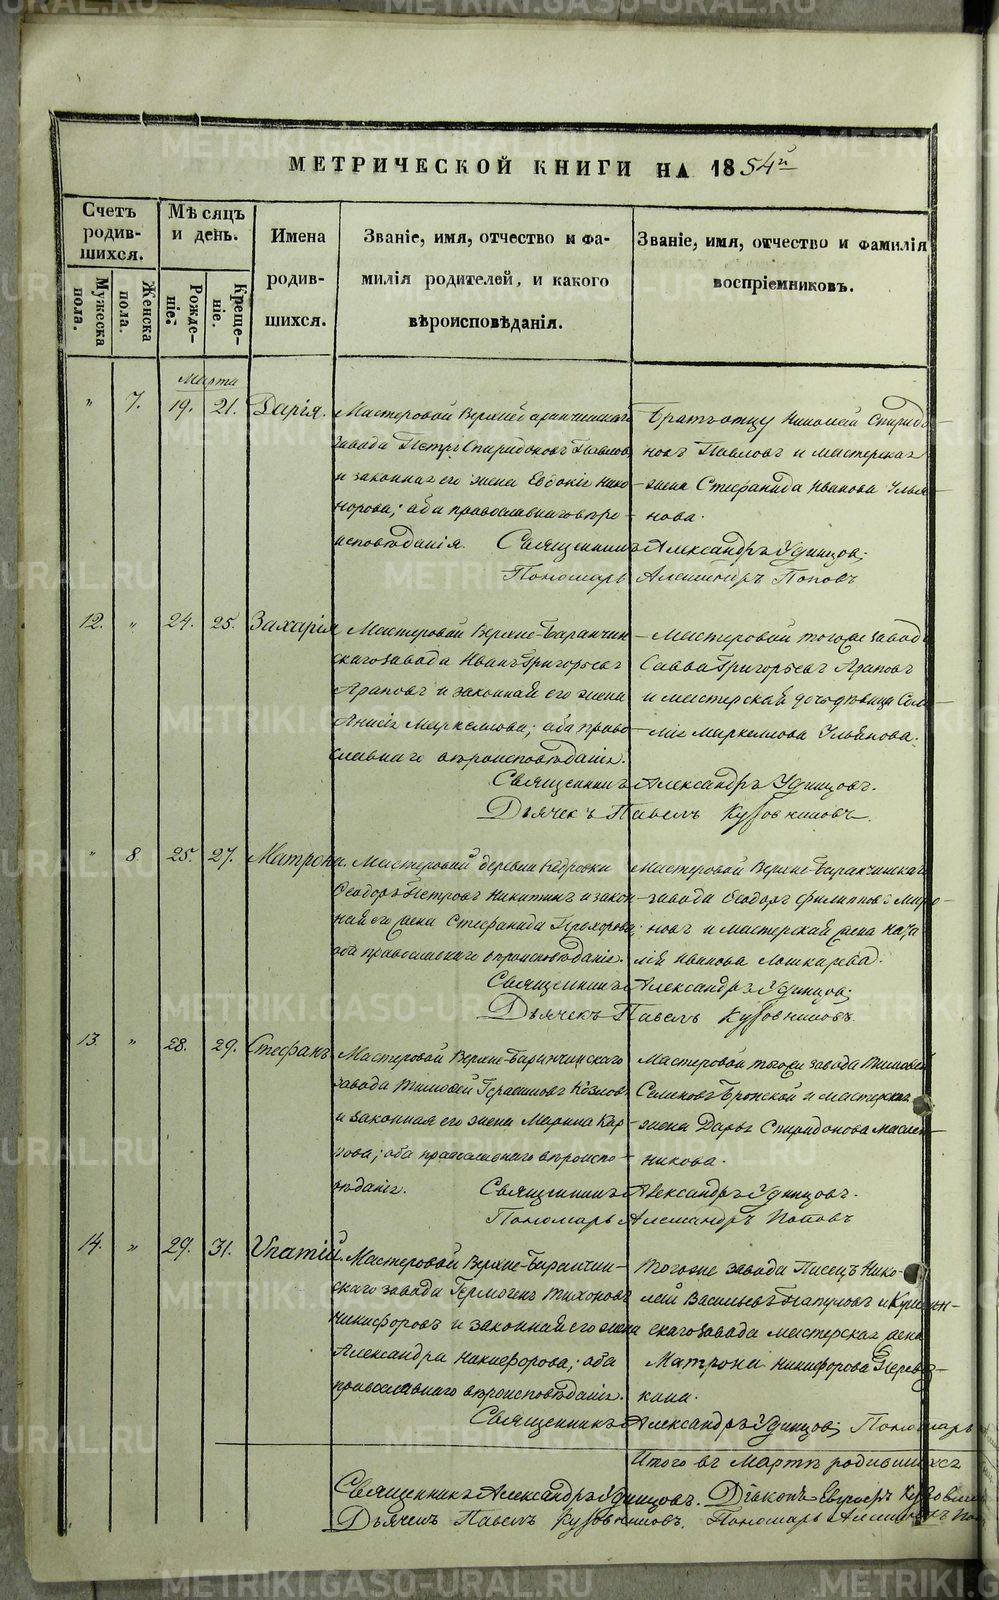 МЕТРИЧЕСКОЙ КНИГИ НА 1854й
Счетъ родив-шихся.
Мѣсяцъ и день.
Имена родив-шихся.
Званіе, имя, отчество и фа-
милія родителей, и какого
вѣроисповѣданія.
Званіе, имя, отчество и фамилія
воспріемниковъ.
Мужеска пола.
Женска пола.
Рожде-ніе.
Креще-ніе.
Марта
" 7. 19. 21. Дарія.
Мастеровой Верхнебаранчинскаго
завода Петръ Спиридоновъ Павловъ
и законная его жена Евдокія Ника-
норова; оба православнаго вѣро-
исповѣданія.
Братъ отцу Николай Спиридо-
новъ Павловъ и мастерская
жена Стефанида Иванова Улья-
нова.
Священникъ Александръ Удинцов;
Пономарь Александръ Поповъ
12. " 24. 25. Захарія
Мастеровой Верхне-Баранчин-
скаго завода Иванъ Григорьевъ
Араповъ и законная его жена
Анисія Маркелова; оба право-
славнаго вѣроисповѣданія.
Мастеровой тогоже завода
Савва Григорьевъ Араповъ
и мастерская дочь дѣвица Сало-
мія Маркеллова Ульянова.
Священникъ Александръ Удинцовъ.
Дьячекъ Павелъ Кузовниковъ.
" 8. 25. 27. Матрона.
Мастеровый деревни Кедровки
Ѳеодоръ Петровъ Никитинъ и закон-
ная его жена Стефанида Прохорова;
оба православнаго вѣроисповѣданія.
Мастеровой Верхне-Баранчинскаго
завода Ѳеодоръ Филипповъ Миро-
новъ и мастерская жена Ната-
лія Иванова Лошкарева.
Священникъ Александръ Удинцов;
Дьячекъ Павелъ Кузовниковъ.
13. " 28. 29. Стефанъ
Мастеровой Верхне-Баранчинскаго
завода Тимоѳей Герасимовъ Козловъ
и законная его жена Марина Кар-
пова; оба православнаго вѣроиспо-
вѣданія.
Мастеровой тогоже завода Тимоѳей
Семеновъ Бронской и мастерская
жена Дарья Спиридонова Маслен-
никова.
Священникъ Александръ Удинцовъ.
Пономарь Александръ Поповъ
14. " 29. 31. Ипатій.
Мастеровой Верхне-Баранчин-
скаго завода Гермогенъ Тихоновъ
Никифоровъ и законная его жена
Александра Никифорова; оба
православнаго вѣроисповѣданія.
Тогоже завода Писецъ Нико-
лай Васильевъ и
скаго завода мастерская жена
Матрона Никифорова
кина.
Священникъ Александръ Удинцов; Пономарь
Итого въ Мартѣ родившихся
Священникъ Александръ Удинцовъ. Діаконъ
Дьячекъ Павелъ Кузовниковъ. Пономарь Александръ
METRIKI.GASO-URAL.RU